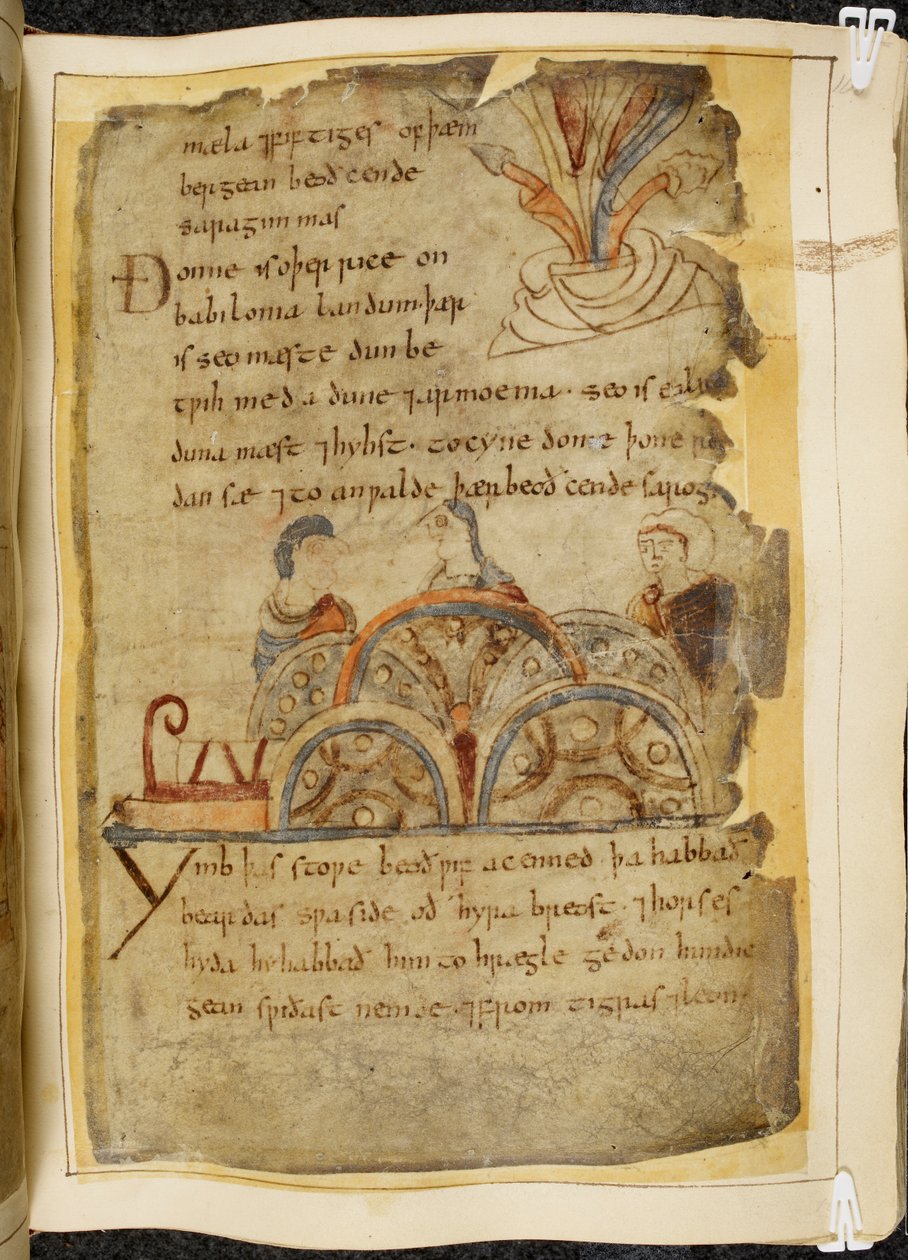 mæla ⁊fiftiges of þæm
bergean beoð cende
saragimmas
Ðonne is oþer rice on
babilonia landum·þær
is seo mæste dun be
tƿih med a dune ⁊armoenia· seo is ealra
duna mæst ⁊hyhst· to cyne dome þone
dan sæ ⁊to anƿalde þær beoð cende sarog
Ymb þas stoƿe beoð ƿif acenned þa habbað
beardas sƿa side oð hyra breost·⁊horses
hyda hy habbað him to hrægle gedon hundic
gean sƿiðast nemde·⁊from tigras ⁊leon